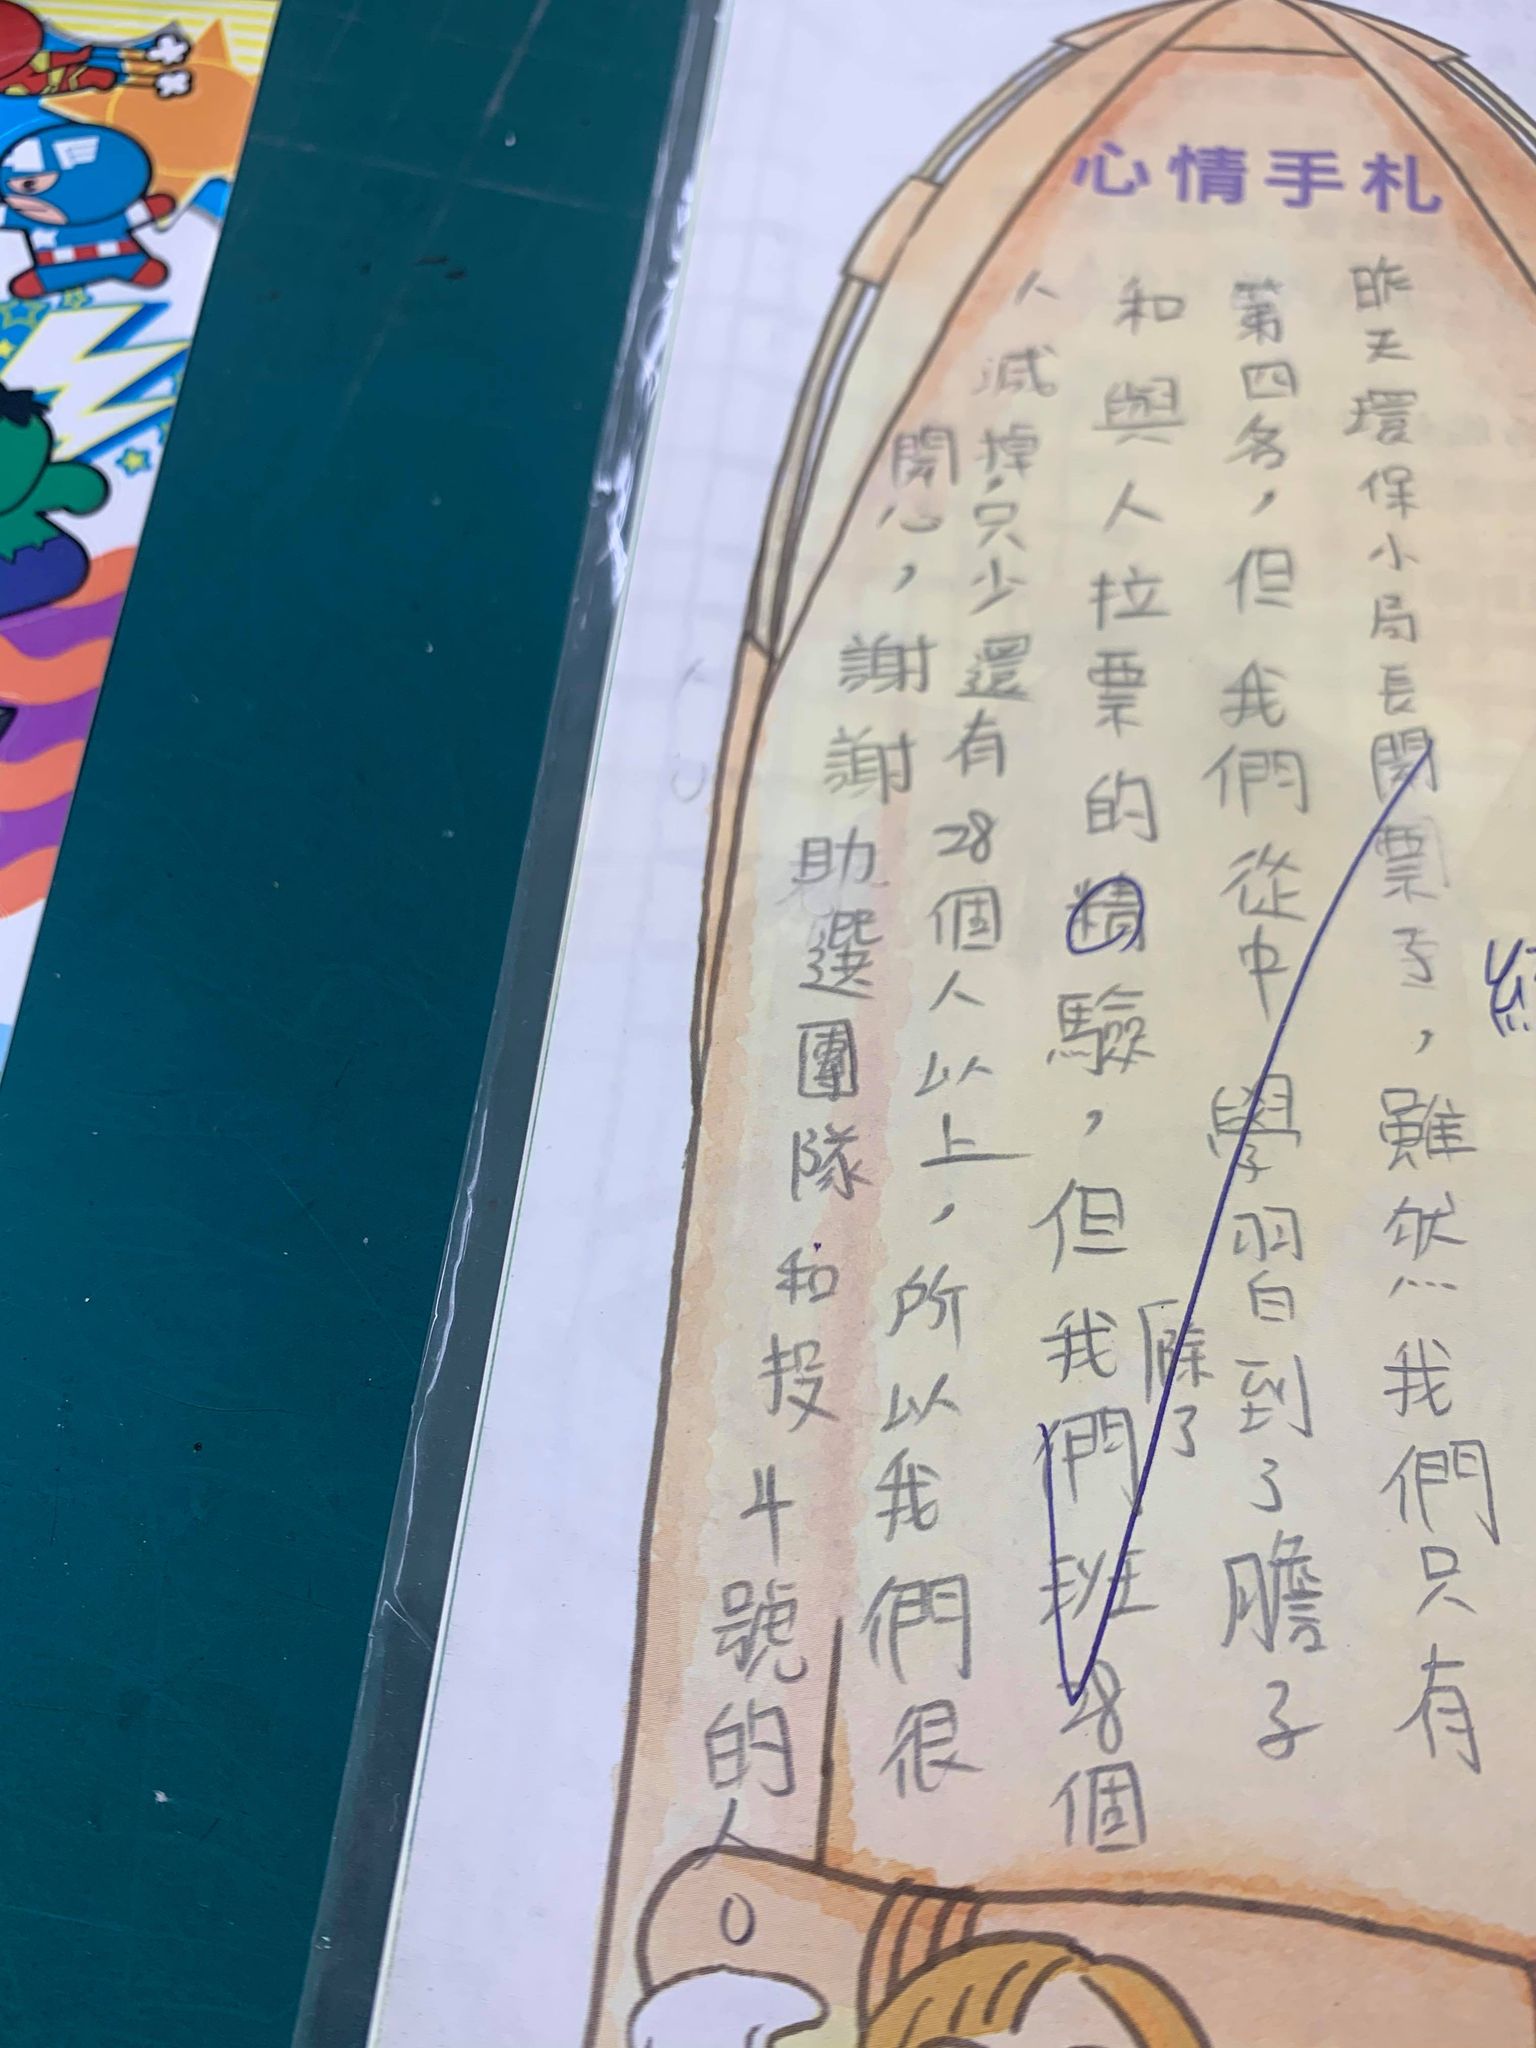 心情手札
昨天環保小局長開票了，雖然我們只有
第四名，但我們從中學習到了膽子
和與人拉票的精驗，但我們班28個
除了
人減掉，只少還有28個人以上，所以我們很
開心，謝謝助選團隊和投4號的人。